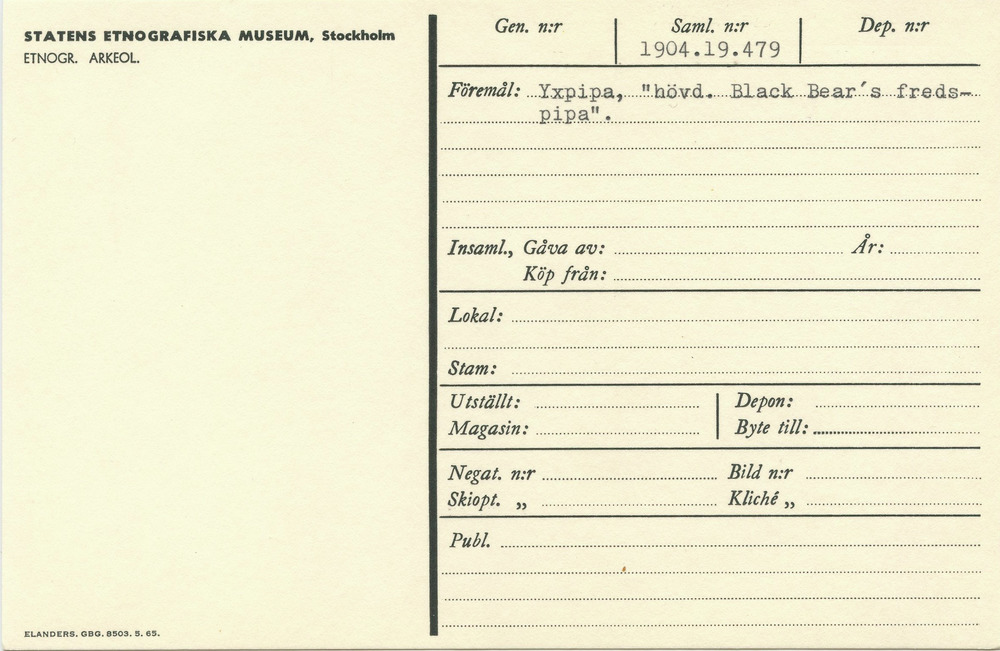 STATENS ETNOGRAFISKA MUSEUM, Stockholm
ETNOGR. ARKEOL.
Gen. n:r
Saml. n:r
Dep. n:r
1904.19.479
Föremål: Yxpipa, "hövd. Black Bear´s freds-
pipa".
Insaml., Gåva av: År:
Köp från:
Lokal:
Stam:
Utställt: Depon:
Magasin: Byte till:
Negat. n:r Bild n:r
Skiopt. „ Kliché „
Publ.
ELANDERS. GBG. 8503. 5. 65.